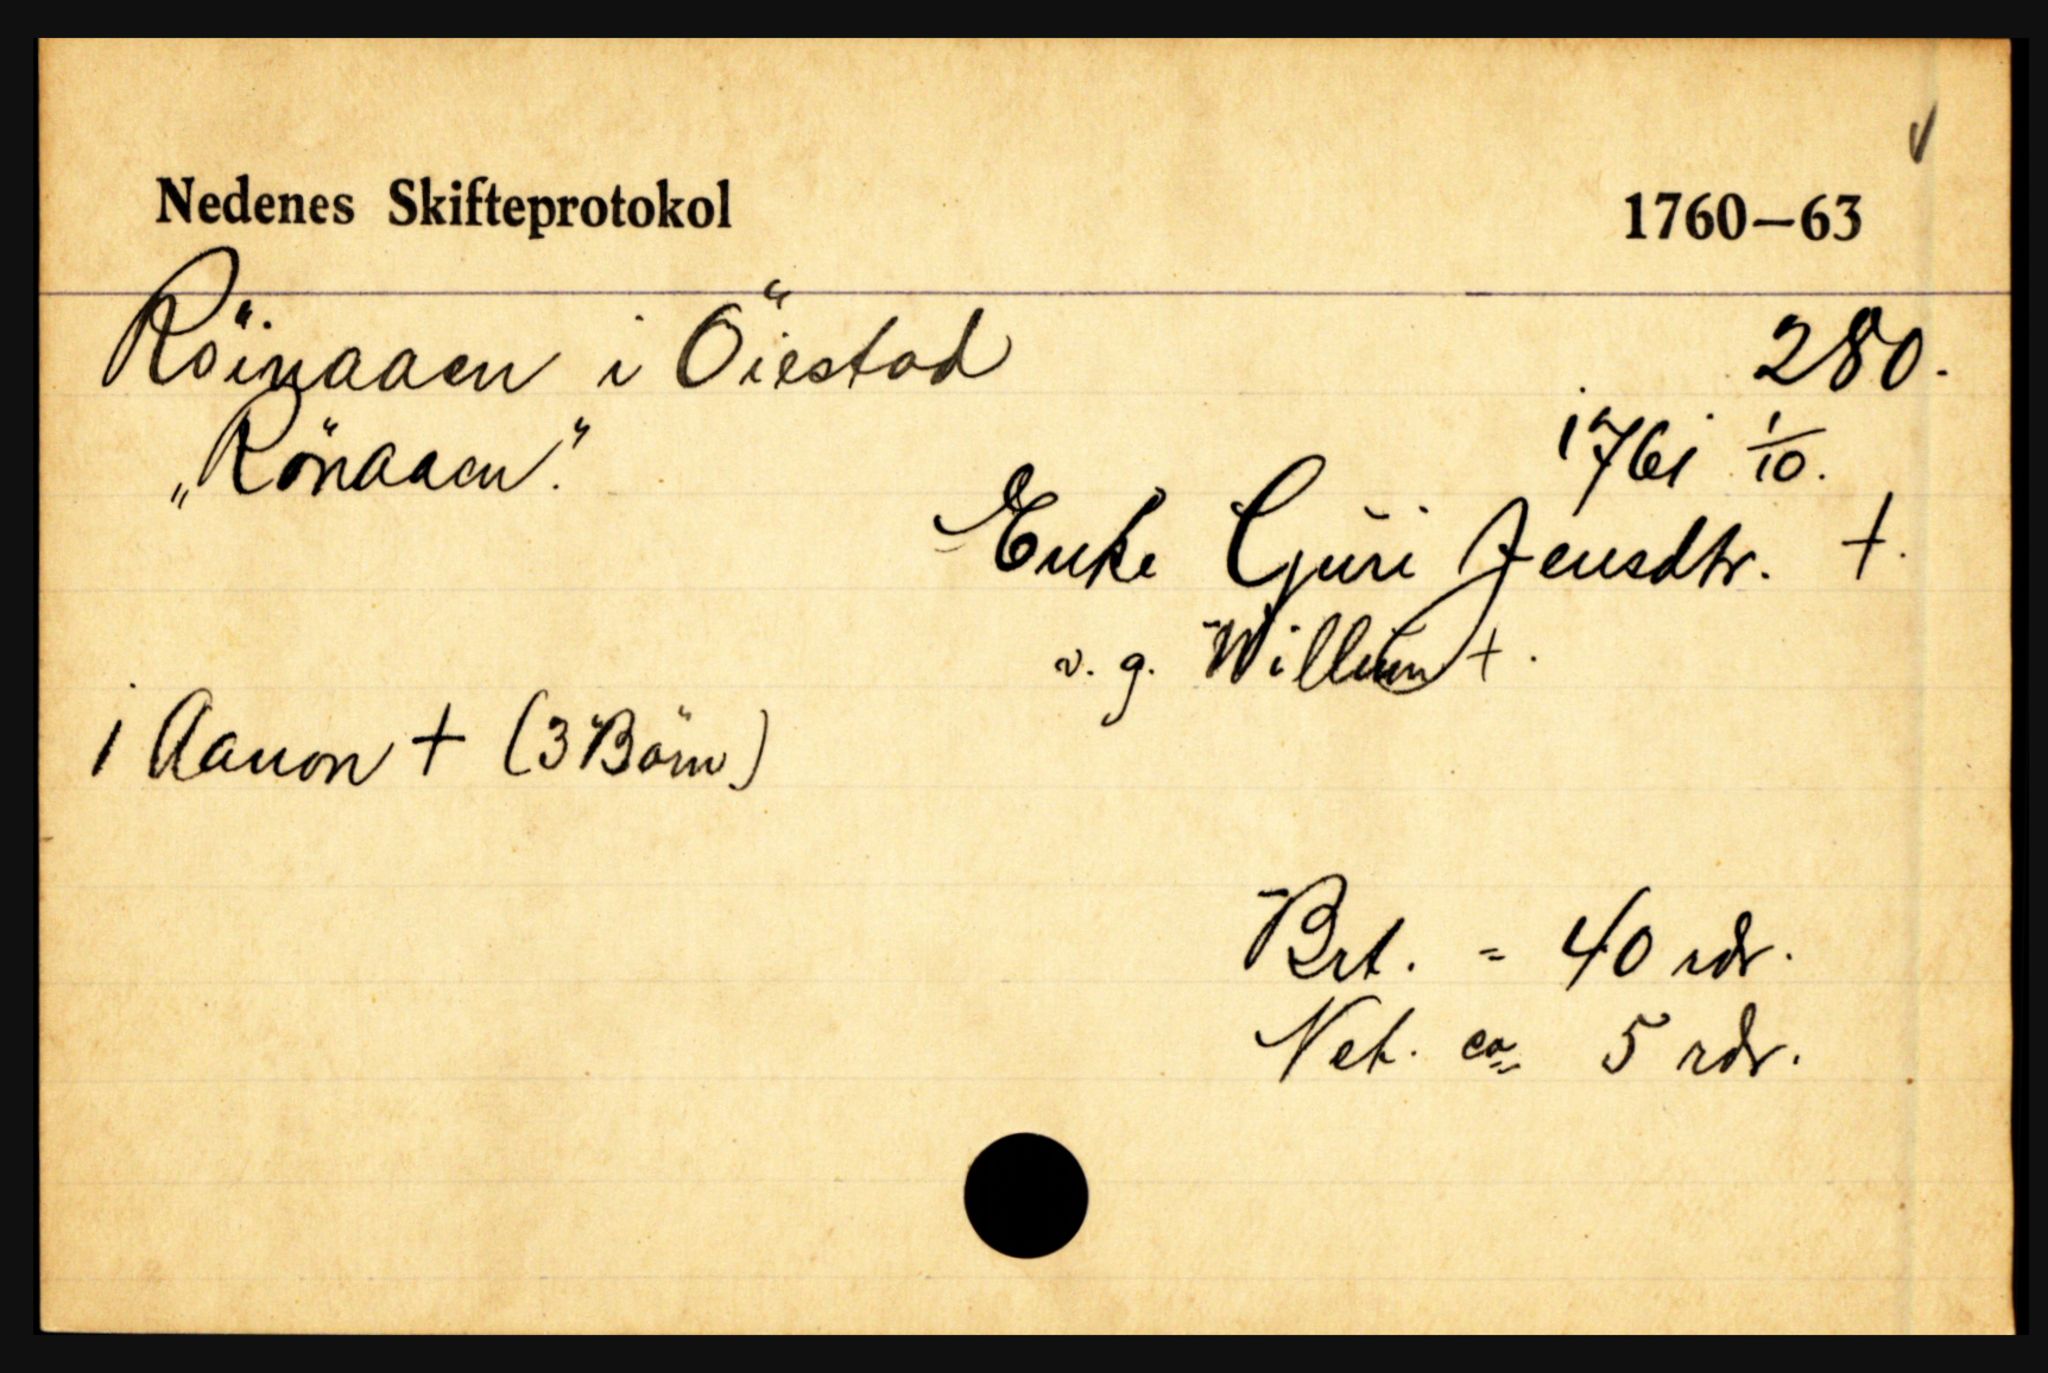 Nedenes Skifteprotokol 1760–63
Röinaaen i Öiestad 280.
„Rönaaen". 1761 1/10.
Enke Guri Jensdtr. +.
v. g. Willum +.
1 Aanon + (3 Börn)
Brt. = 40 rdr.
Net. ca = 5 rdr.